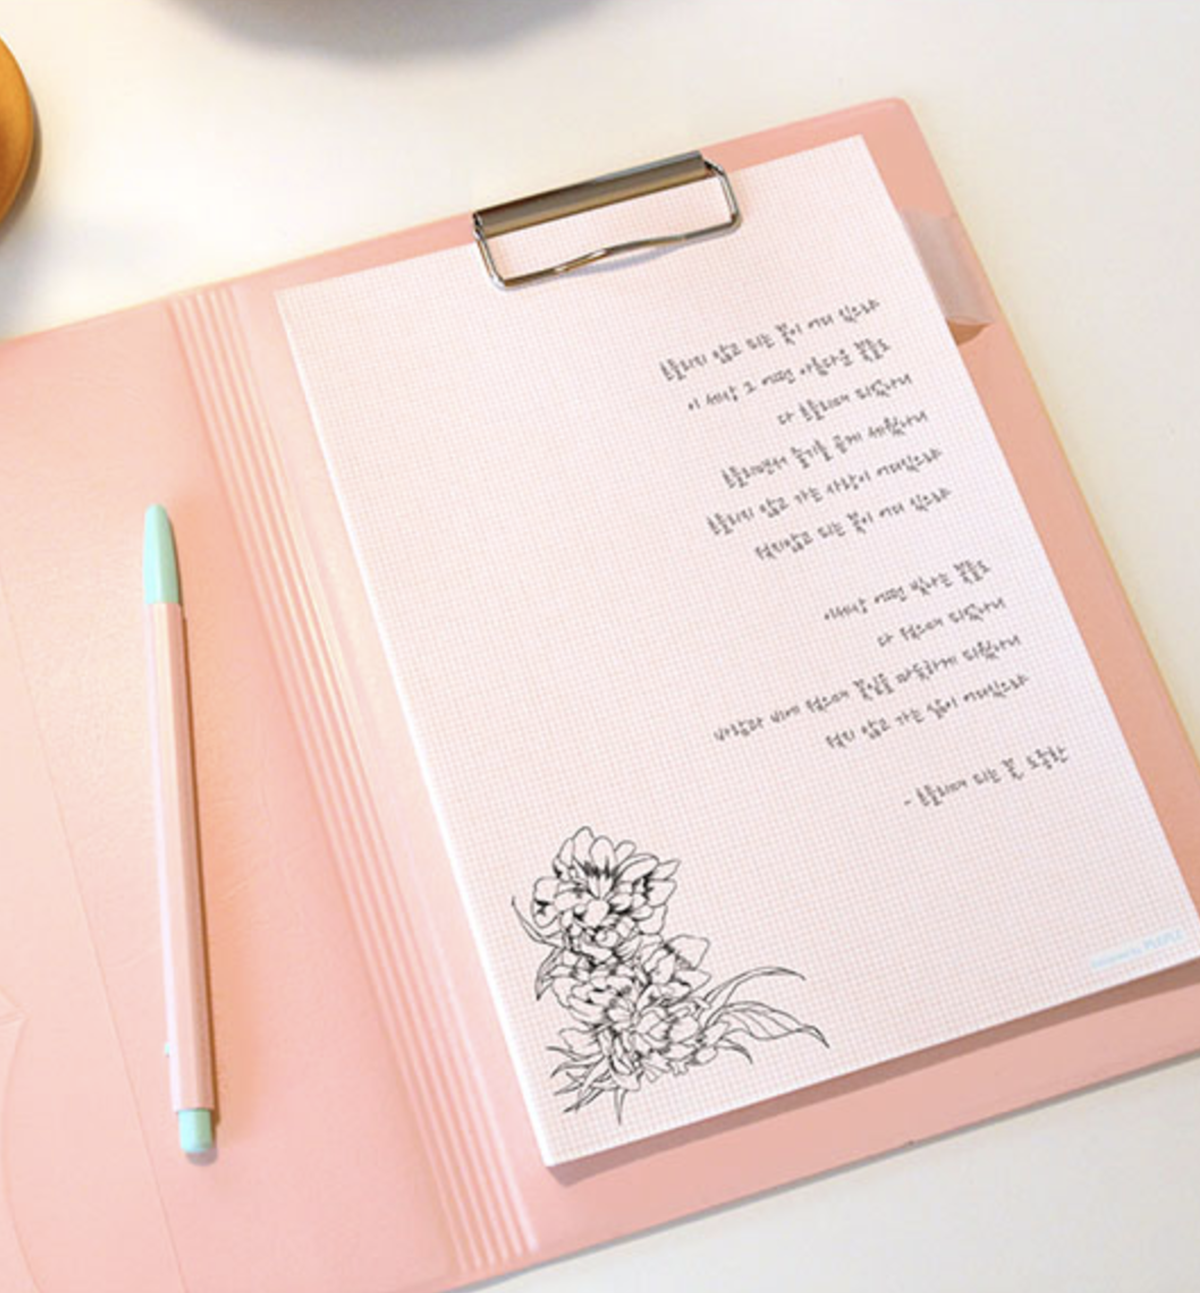 흔들리지 않고 피는 꽃이 어디 있으랴
이 세상 그 어떤 아름다운 꽃들도
다 흔들리며 피었나니
흔들리면서 줄기를 곧게 세웠나니
흔들리지 않고 가는 사랑이 어디있으랴
젖지않고 피는 꽃이 어디 있으랴
이세상 어떤 빛나는 꽃들도
다 젖으며 피었나니
바람과 비에 젖으며 꽃잎을 따뜻하게 피웠나니
젖지 않고 가는 삶이 어디있으랴
- 흔들리며 피는 꽃, 도종환